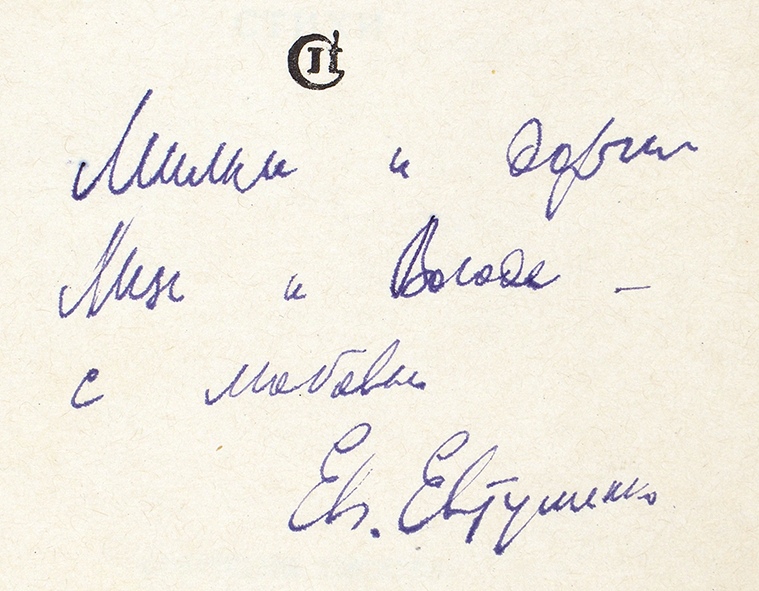 Милым и добрым
Мизе и Володе —
с любовью
Евг. Евтушенко